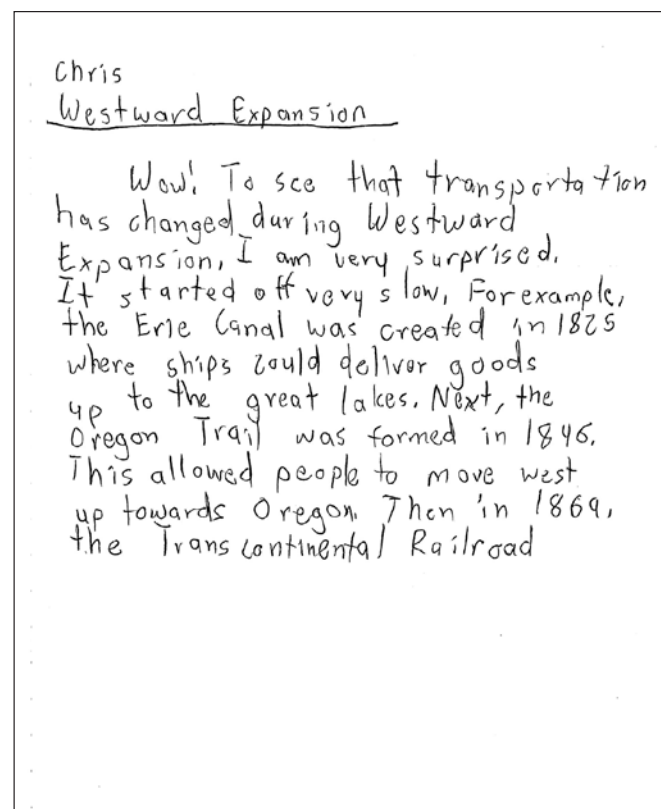 Chris
Westward Expansion
Wow! To see that transportation
has changed during Westward
Expansion, I am very surprised.
It started off very slow, For example,
the Erie Canal was created in 1825
where ships could deliver goods
up to the great lakes. Next, the
Oregon Trail was formed in 1846.
This allowed people to move west
up towards Oregon. Then in 1869,
the Transcontinental Railroad